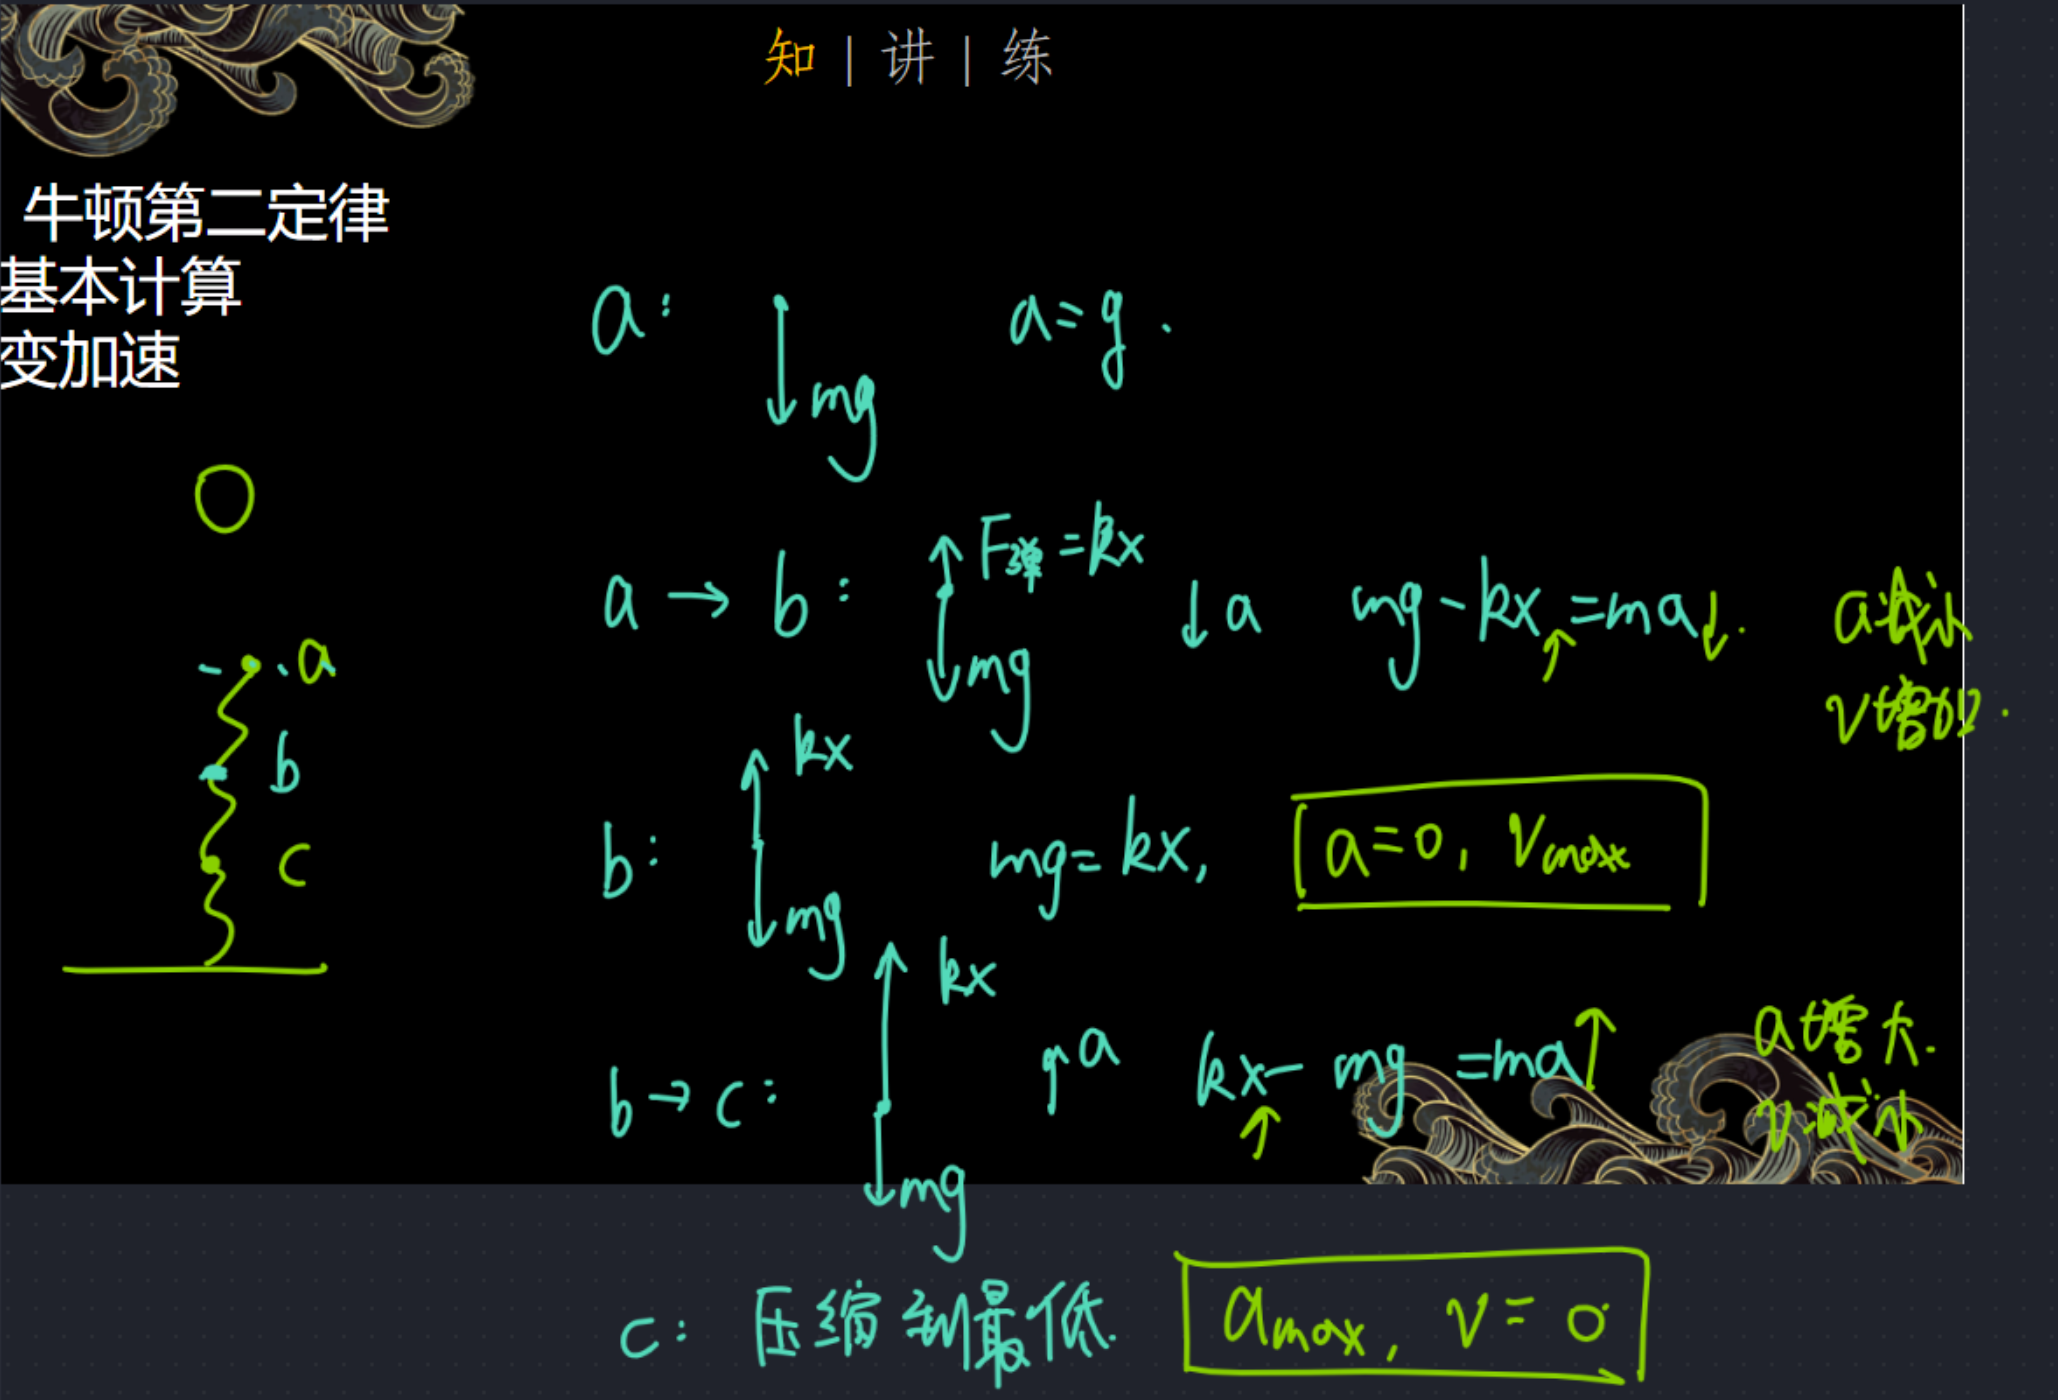 知 | 讲 | 练
牛顿第二定律
基本计算
变加速
a
b
c
a: mg a=g.
a → b: F弹=kx mg ↓a mg-kx↑=ma↓. a减小
v增加.
b: kx mg mg=kx, a=0, vmax
b→c: kx mg ↑a kx↑-mg=ma↑ a增大.
v减小
c: 压缩到最低. amax, v=0